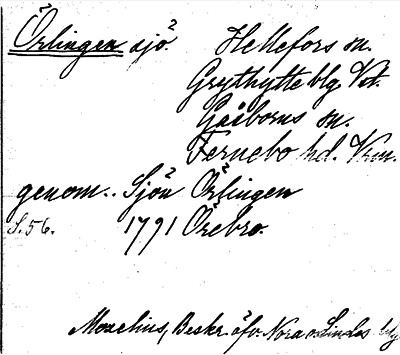 Örlingen sjö Hellefors sn.
Grythytte blg Vst.
Gåsborns sn.
Fernebo hd. Vrm.
genom.. Sjön Örlingen
S. 56. 1791 Örebro.
Moselius, Beskr. öfv. Nora o. Lindes